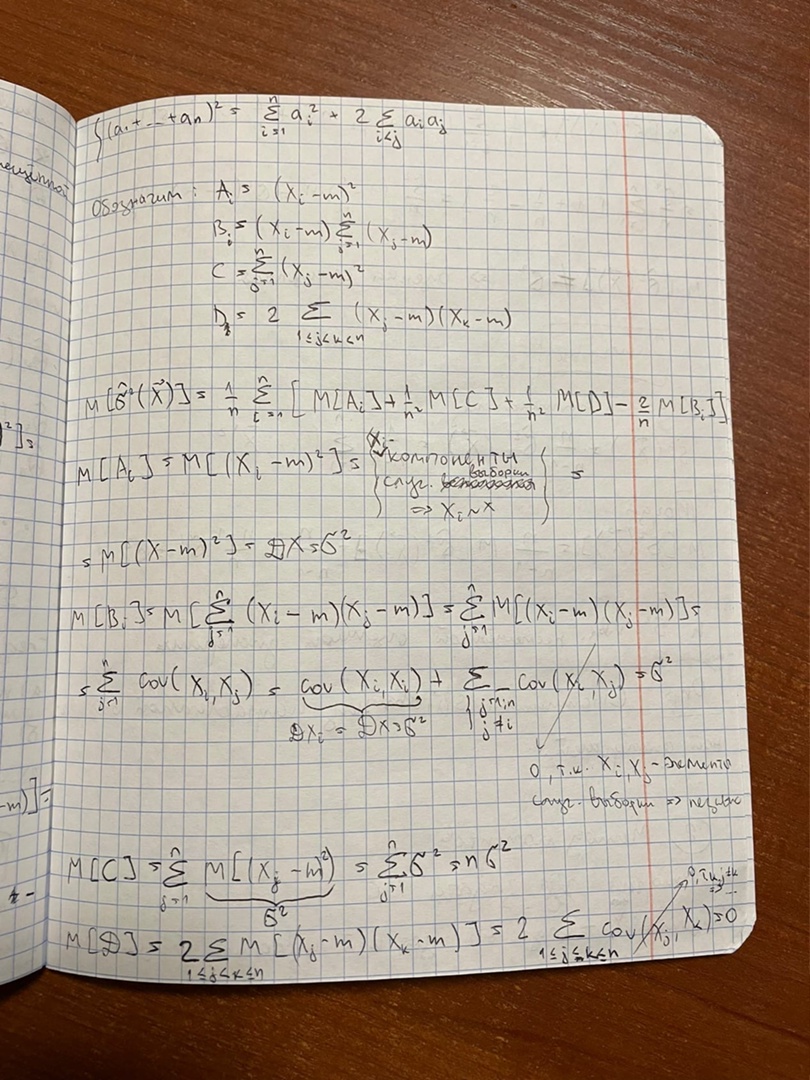 (a₁ + ... + aₙ)² = Σ_{i=1}^{n} aᵢ² + 2 Σ_{i<j} aᵢ aⱼ
Обозначим: Aᵢ = (Xᵢ - m)²
Bᵢ = (Xᵢ - m) Σ_{j=1}^{n} (Xⱼ - m)
C = Σ_{j=1}^{n} (Xⱼ - m)²
D = 2 Σ_{1≤j<k≤n} (Xⱼ - m)(Xₖ - m)
M[σ̂²(X⃗)] = 1/n Σ_{i=1}^{n} [M[Aᵢ] + 1/n² M[C] + 1/n² M[D] - 2/n M[Bᵢ]]
M[Aᵢ] = M[(Xᵢ - m)²] = {Xᵢ - компоненты
случ. выборки
=> Xᵢ ~ X} =
= M[(X - m)²] = DX = σ²
M[Bᵢ] = M[Σ_{j=1}^{n} (Xᵢ - m)(Xⱼ - m)] = Σ_{j=1}^{n} M[(Xᵢ - m)(Xⱼ - m)] =
= Σ_{j=1}^{n} cov(Xᵢ, Xⱼ) = cov(Xᵢ, Xᵢ) + Σ_{j=1;n, j≠i} cov(Xᵢ, Xⱼ) = σ²
DXᵢ = DX = σ²
0, т.к. Xᵢ, Xⱼ - элементы
случ. выборки => незав
M[C] = Σ_{j=1}^{n} M[(Xⱼ - m)²] = Σ_{j=1}^{n} σ² = nσ²
σ²
0, т.к. j≠k
=> ...
M[D] = 2 Σ_{1≤j<k≤n} M[(Xⱼ - m)(Xₖ - m)] = 2 Σ_{1≤j≤k≤n} cov(Xⱼ, Xₖ) = 0